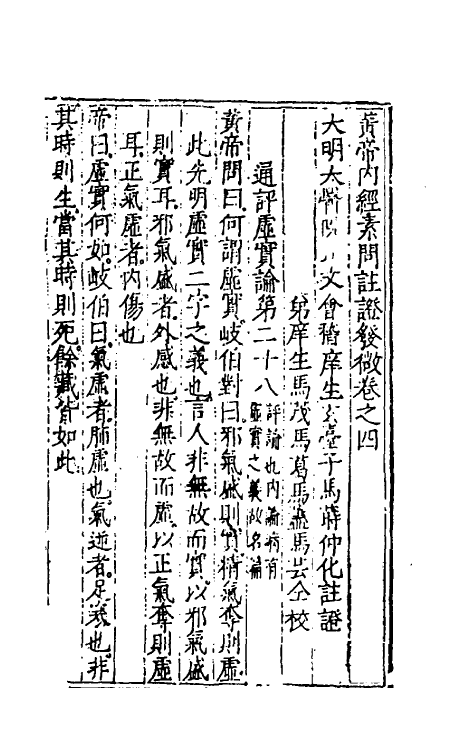 黃帝內經素問註證發微卷之四
大明太醫院正文會稽庠生玄臺子馬蒔仲化註證
弟庠生馬茂馬葛馬馬芸仝校
通評虛實論第二十八
評論也內論病有
虛實之義故名篇
黃帝問曰何謂虛實岐伯對曰邪氣盛則實精氣奪則虛
此先明虛實二字之義也言人非無故而實以邪氣盛
則實耳邪氣盛者外感也非無故而虛以正氣奪則虛
耳正氣虛者內傷也
帝曰虛實何如岐伯曰氣虛者肺虛也氣逆者足寒也非
其時則生當其時則死餘藏皆如此